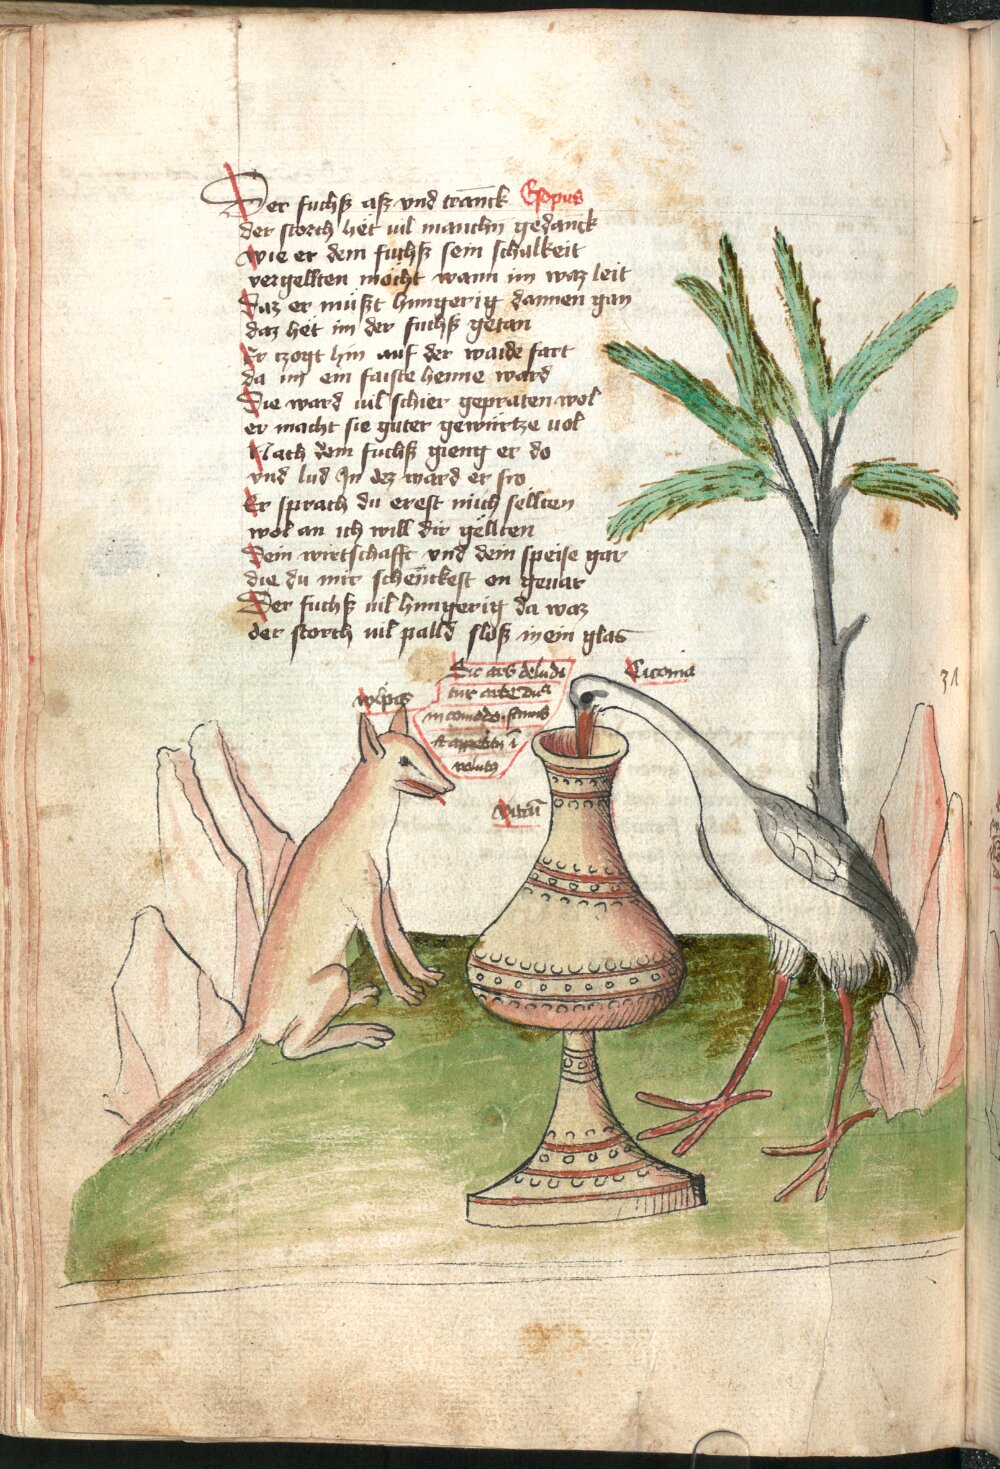 Der fuchß aß vnd tranck Esopus
der storch het vil manchn gedanck
wie er dem fuchß sein schalkeit
vergellten möcht wann im waz leit
Daz er müßt hungerig dannen gan
daz het im der fuchß getan
Er tzogt hin auf der waide fart
da im ein faiste henne ward
Die ward vil schier gepraten wol
er macht sie guter gewürtze vol
Nach dem fuchß gieng er do
vnd lud In dez ward er fro
Er sprach du erest mich sellten
wol an ich will dir gellten
Dein wirtschafft vnd dein speise gar
die du mir schenckest on geuar
Der fuchß vil hungerig da waz
der storch vil palld sloß in ein glas
Sic ars deludi
tur arte
Ciconia
wlpis
vitrū
31